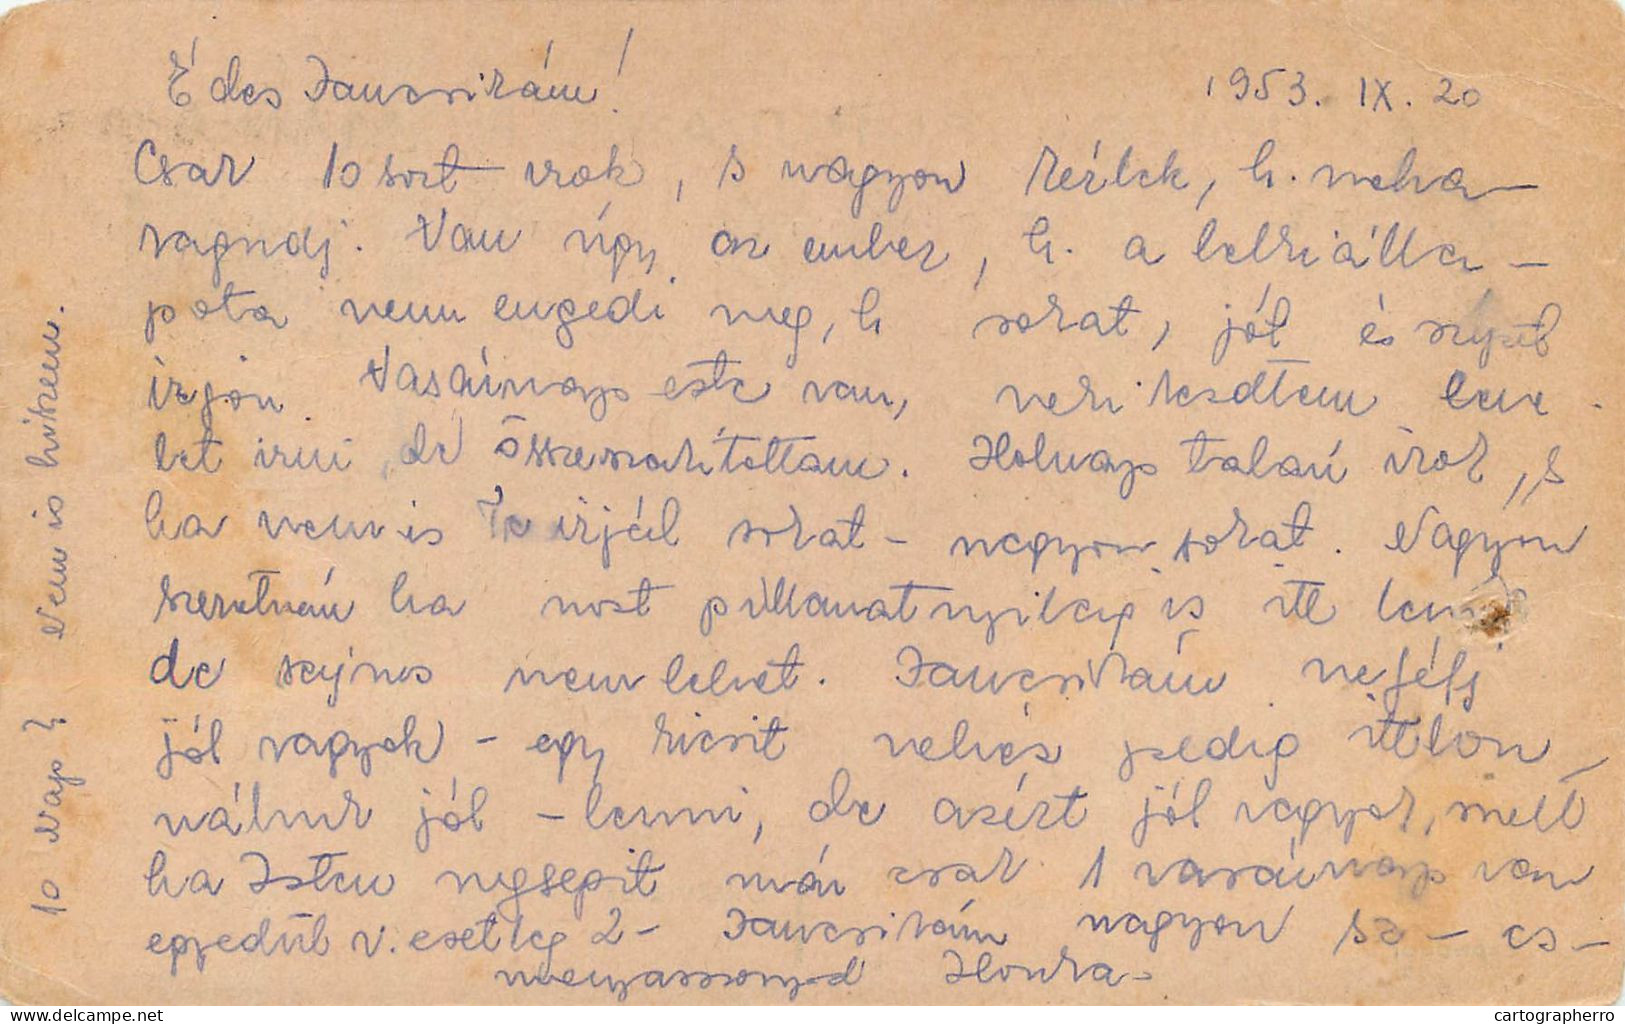 Édes Jancsikám!
1953. IX. 20
Csak 10 sort irok, s nagyon kérlek, h. neha-
ragudj. Van úgy az ember, h. a lelkiálla-
pota nem engedi meg, h sokat, jól és szépet
írjon. Vasárnap este van, neki kezdtem leve
let irni, de összeszakítottam. Holnap talán irok, s
ha nem is Te irjál sokat - nagyon sokat. Nagyon
szeretném ha most pillanatnyilag is itt
de sajnos nem lehet. Jancsikám ne félj
jól vagyok - egy kicsit nehéz pedig itthon
nálunk jól - lenni, de azért jól vagyok, mert
ha Isten megsegit már csak 1 vasárnap van
egyedül v. esetleg 2- Jancsikám nagyon sz - cs -
menyasszonyod Ilonka-
10 nap? Nem is hiszem.
www.delcampe.net
cartographerro